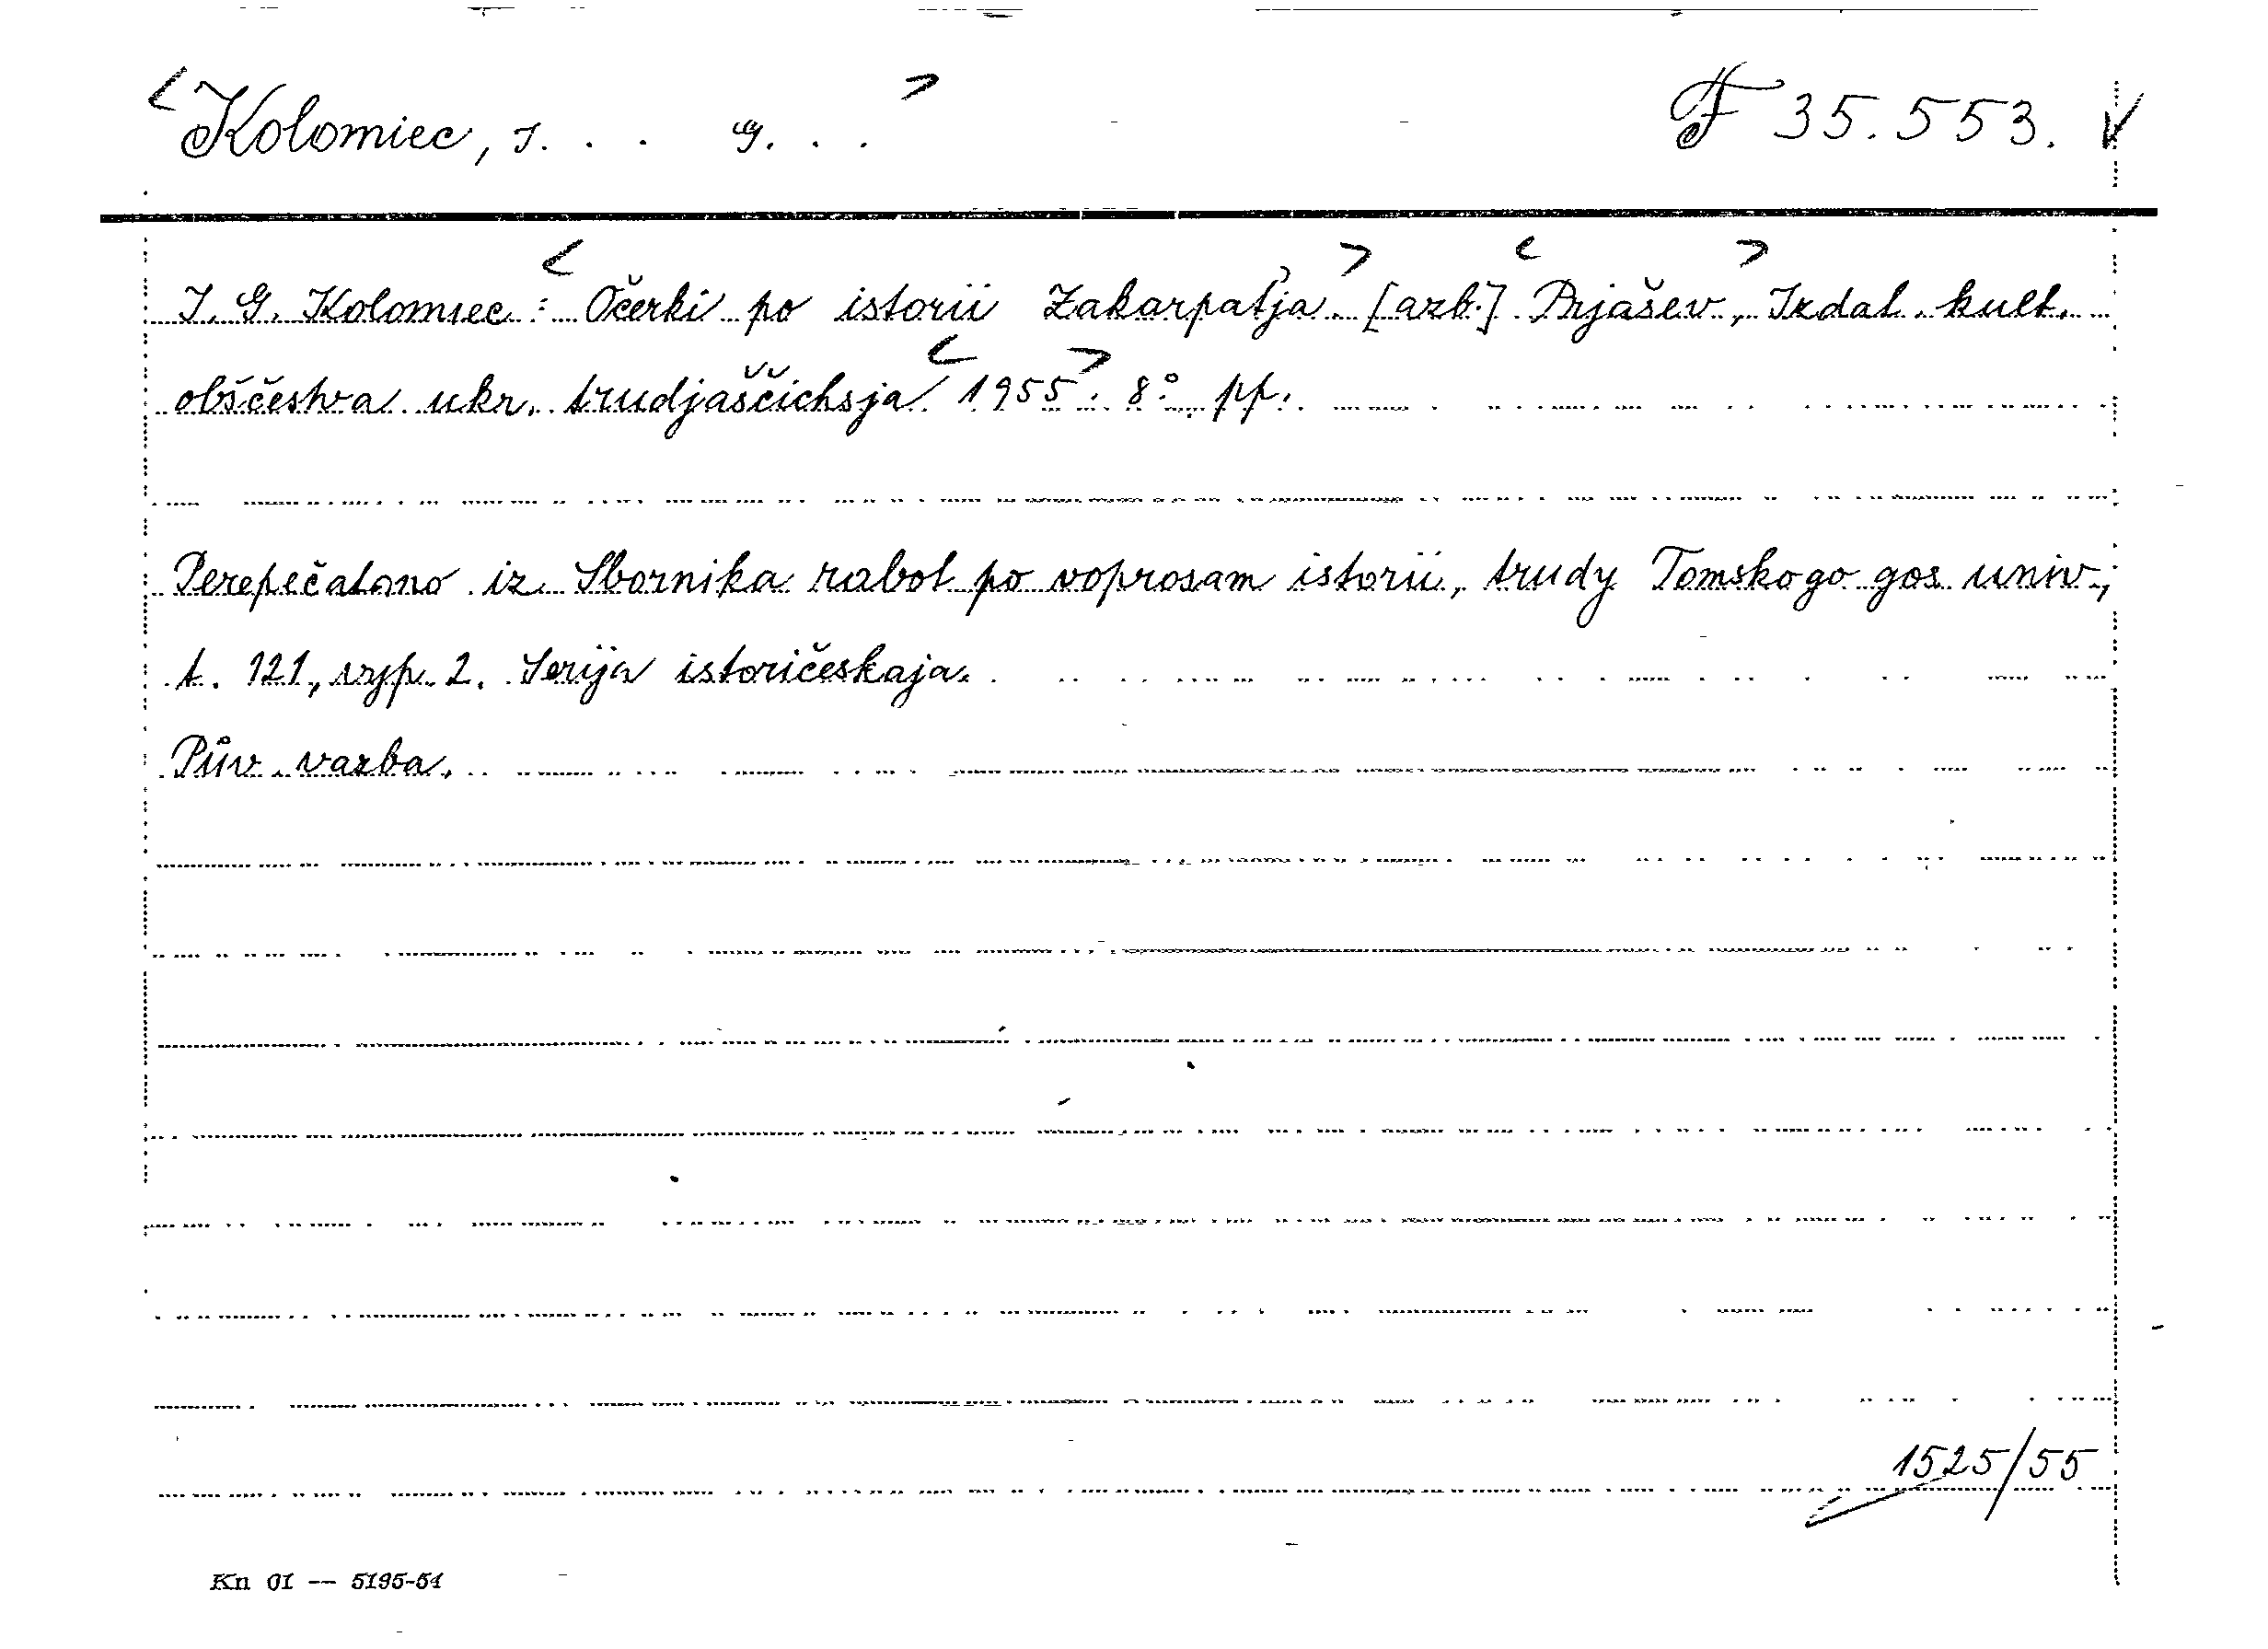 <Kolomiec, I. . . G. . .> F 35.553.
I. G. Kolomiec: <Očerki po istorii Zakarpaťja.> [azb.] <Prjašev>, Izdat. kult.
obščestva ukr. trudjaščichsja <1955>. 8°. pp.
Perepečatano iz Sbornika rabot po voprosam istorii, trudy Tomskogo gos univ.,
t. 121, vyp. 2. Serija istoričeskaja.
Pův. vazba.
1525/55
Kn 01 — 5195-54